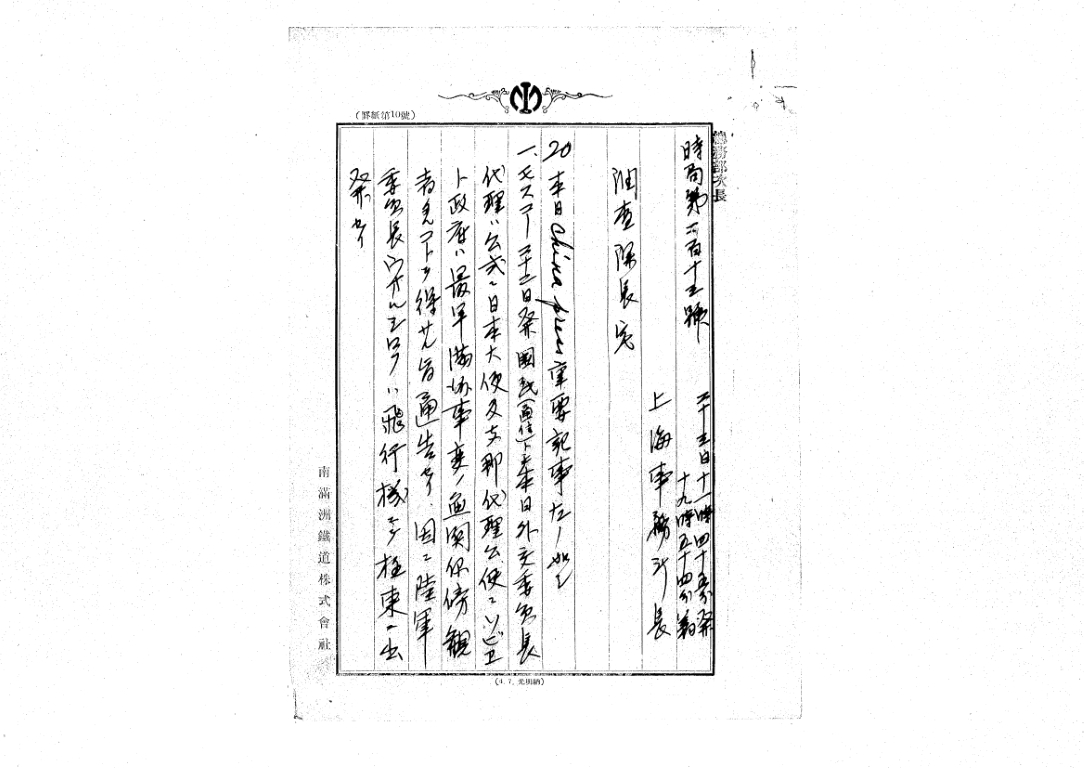 (罫紙第10號)
總務部次長
時局第二百十三號
二十三日十一時四十五分発
十九時五十四分着
上海事務所長
調査課長宛
20 本日 china press 重要記事左ノ如シ
一、モスコー二十二日発國民(通信)ニ本日外交委員長
代理ハ公式ニ日本大使及支那代理公使ニソビエ
ト政府ハ最早満洲事変ノ無関係傍観
者タルコトヲ得サル旨通告セリ、因ニ陸軍
委員長ウオルシロフハ飛行機ニテ極東ヘ出
発セリ
南滿洲鐵道株式會社